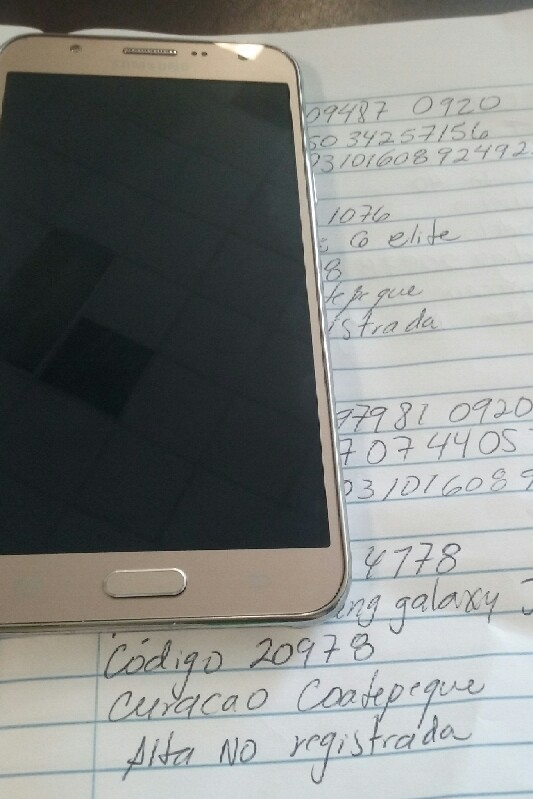 SAMSUNG
09487 0920
50 34257156
23101608924923
1076
Co elite
8
tepeque
istrada
77981 0920
7 07 44 05
23101608 9
4178
ung galaxy J
Código 20978
Curacao Coatepeque
Alta NO registrada